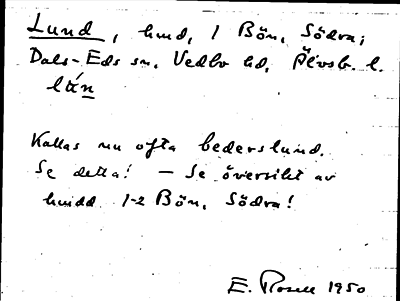 Lund, hmd, 1 Bön, Södra;
Dals-Eds sn, Vedbo hd, Älvsb. l.
län
Kallas nu ofta bederslund.
Se detta! — Se översikt av
hmdd 1-2 Bön, Södra!
E. Rosell 1950